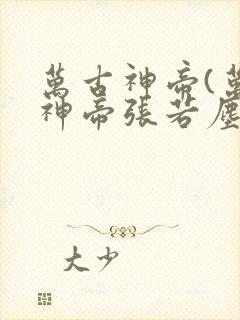 萬古神帝(萬
神帝張若塵
大少